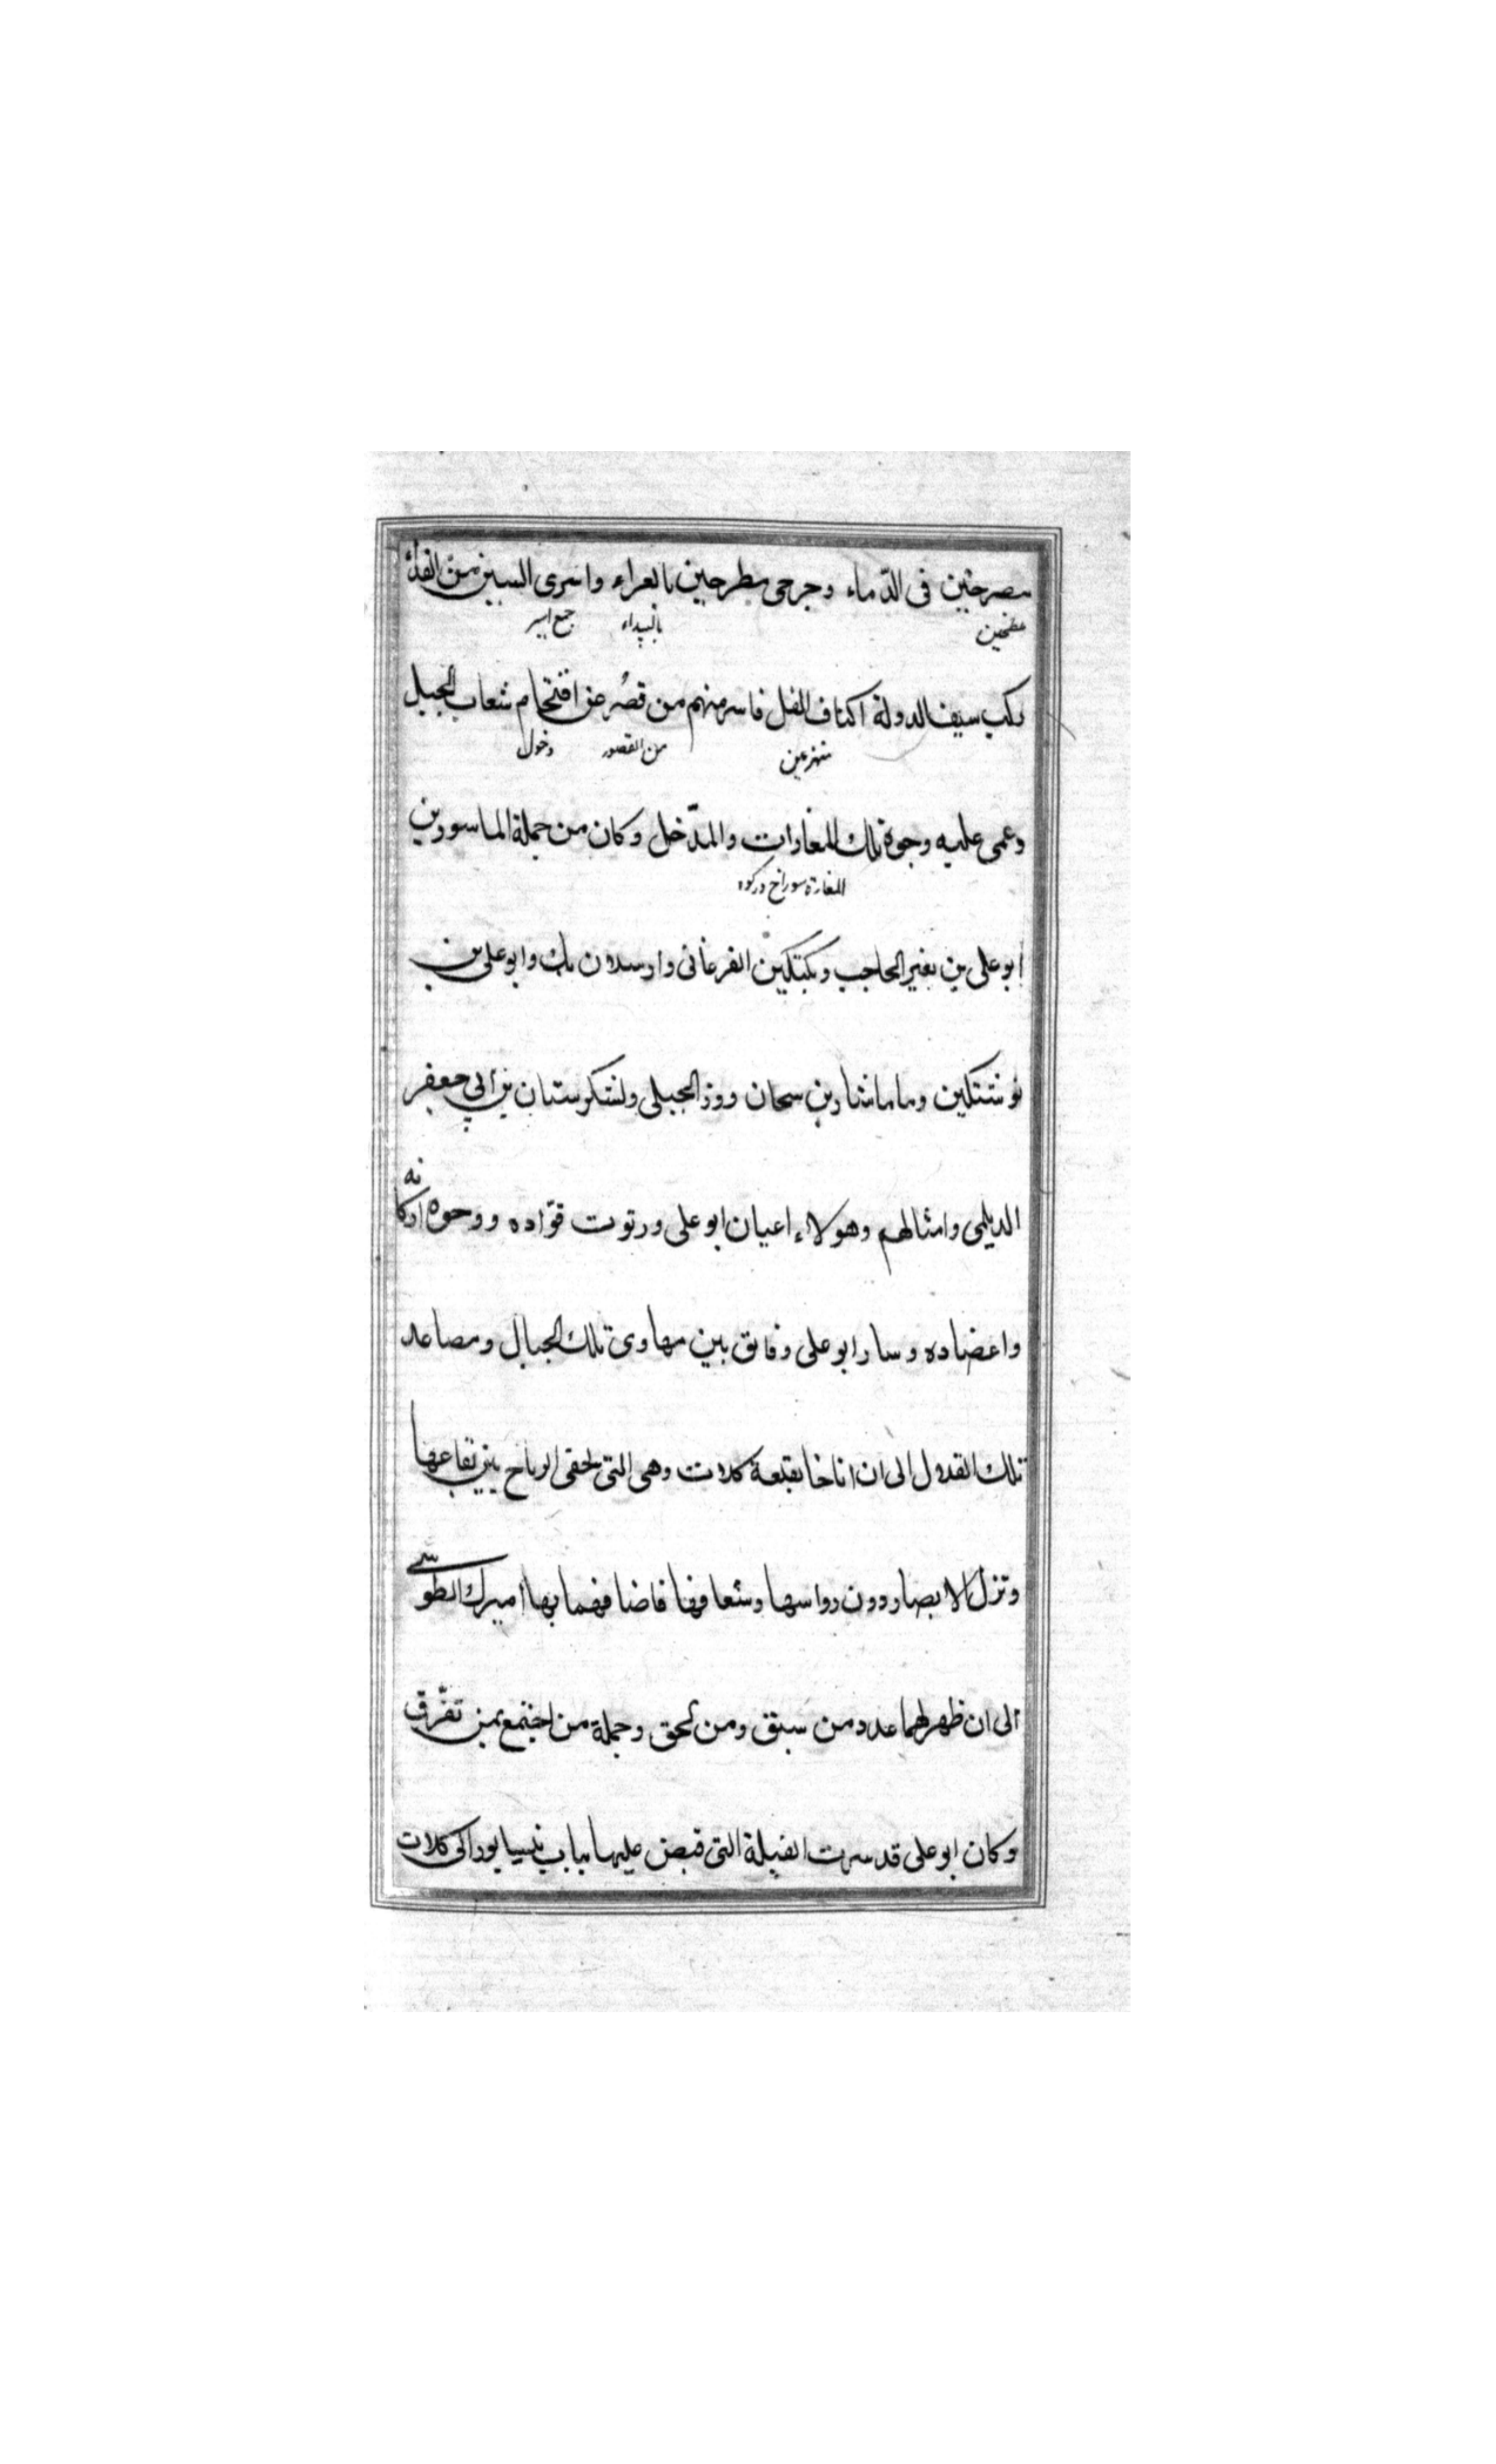 مضرجين فى الدّماء وجرحى مطرحين بالعراء واسرى السبين من الفداء
ملطخين بالبيداء جمع اسير
ركب سيف الدولة اكتاف الفل فاسر منهم من قصُر عن اقتحام شعاب الجبل
منهزمين من القصور دخول
وعمى عليه وجوه تلك المغارات والمدّخل وكان من جملة الماسورين
المغارة سوراخ در كوه
ابو على بن بغير الحاجب وبكتكين الفرغانى وارسلان بك وابو على بن
نوشتكين وماماشاد بن سحان ووذ الجبلى ولشكرستان بن ابى جعفر
الديلمى وامثالهم وهولاء اعيان ابو على ورتوت قوّاده ووجوه اركانه
واعضاده وسار ابو على وفايق بين مهاوى تلك الجبال ومصاعد
تلك القلال الى ان اناخا بقلعة كلات وهى التى تحفى الرياح بين بقاعها
وتزل الابصار دون رواسها وشعافها فاضافهما بها اميرك الطوسى
الى ان ظهر لهما عدد من سبق ومن لحق وجملة من اجتمع ممن تفرّق
وكان ابو على قد سرب الفيلة التى قبض عليها بباب نيسابور الى كلات